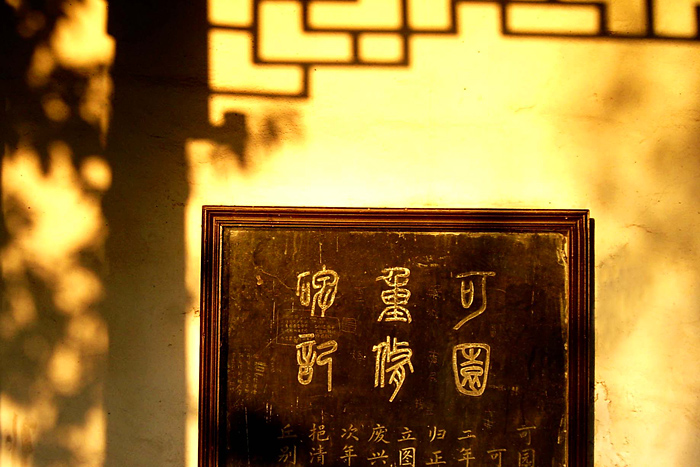 可園
重修
碑記
可园
可
二年
归正
立图
废兴
次年
挹清